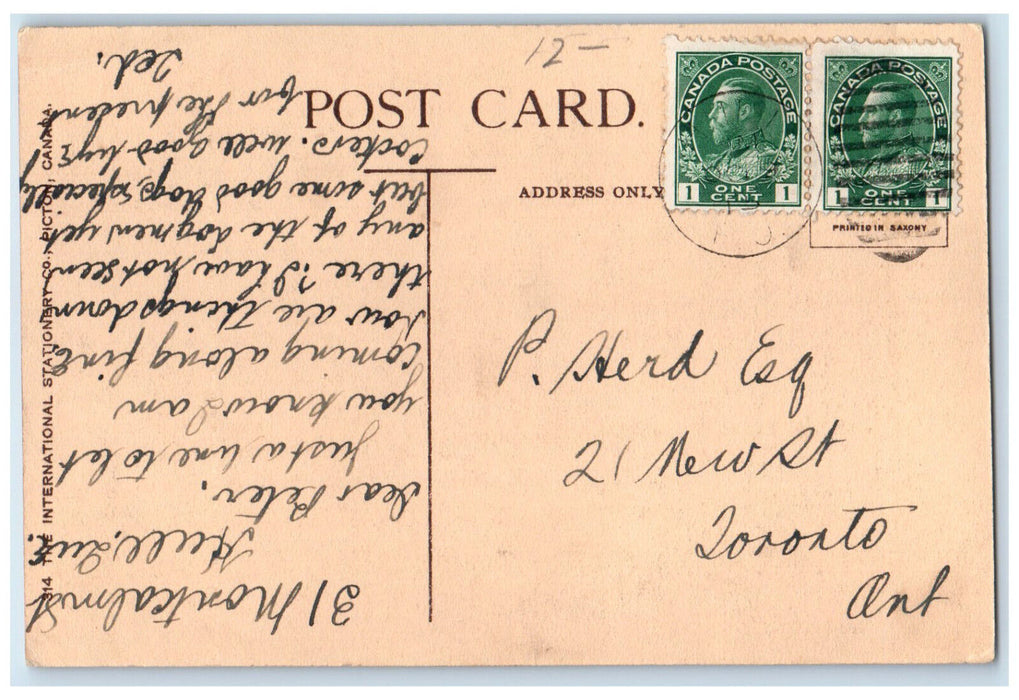 12 –
POST CARD.
ADDRESS ONLY
CANADA POSTAGE
1 ONE CENT 1
CANADA POSTAGE
1 ONE CENT 1
PRINTED IN SAXONY
P. Herd Esq
21 New St
Toronto
Ont
31 Montcalm St
Hull, Que.
Dear Peter,
Just a line to let
you know I am
coming along fine,
how are things down
there? I have not seen
any of the dog men yet
but some good dogs, specially
Cockers. well good bye
for the presen
Ted.
THE INTERNATIONAL STATIONERY CO., PICTON, CANADA.